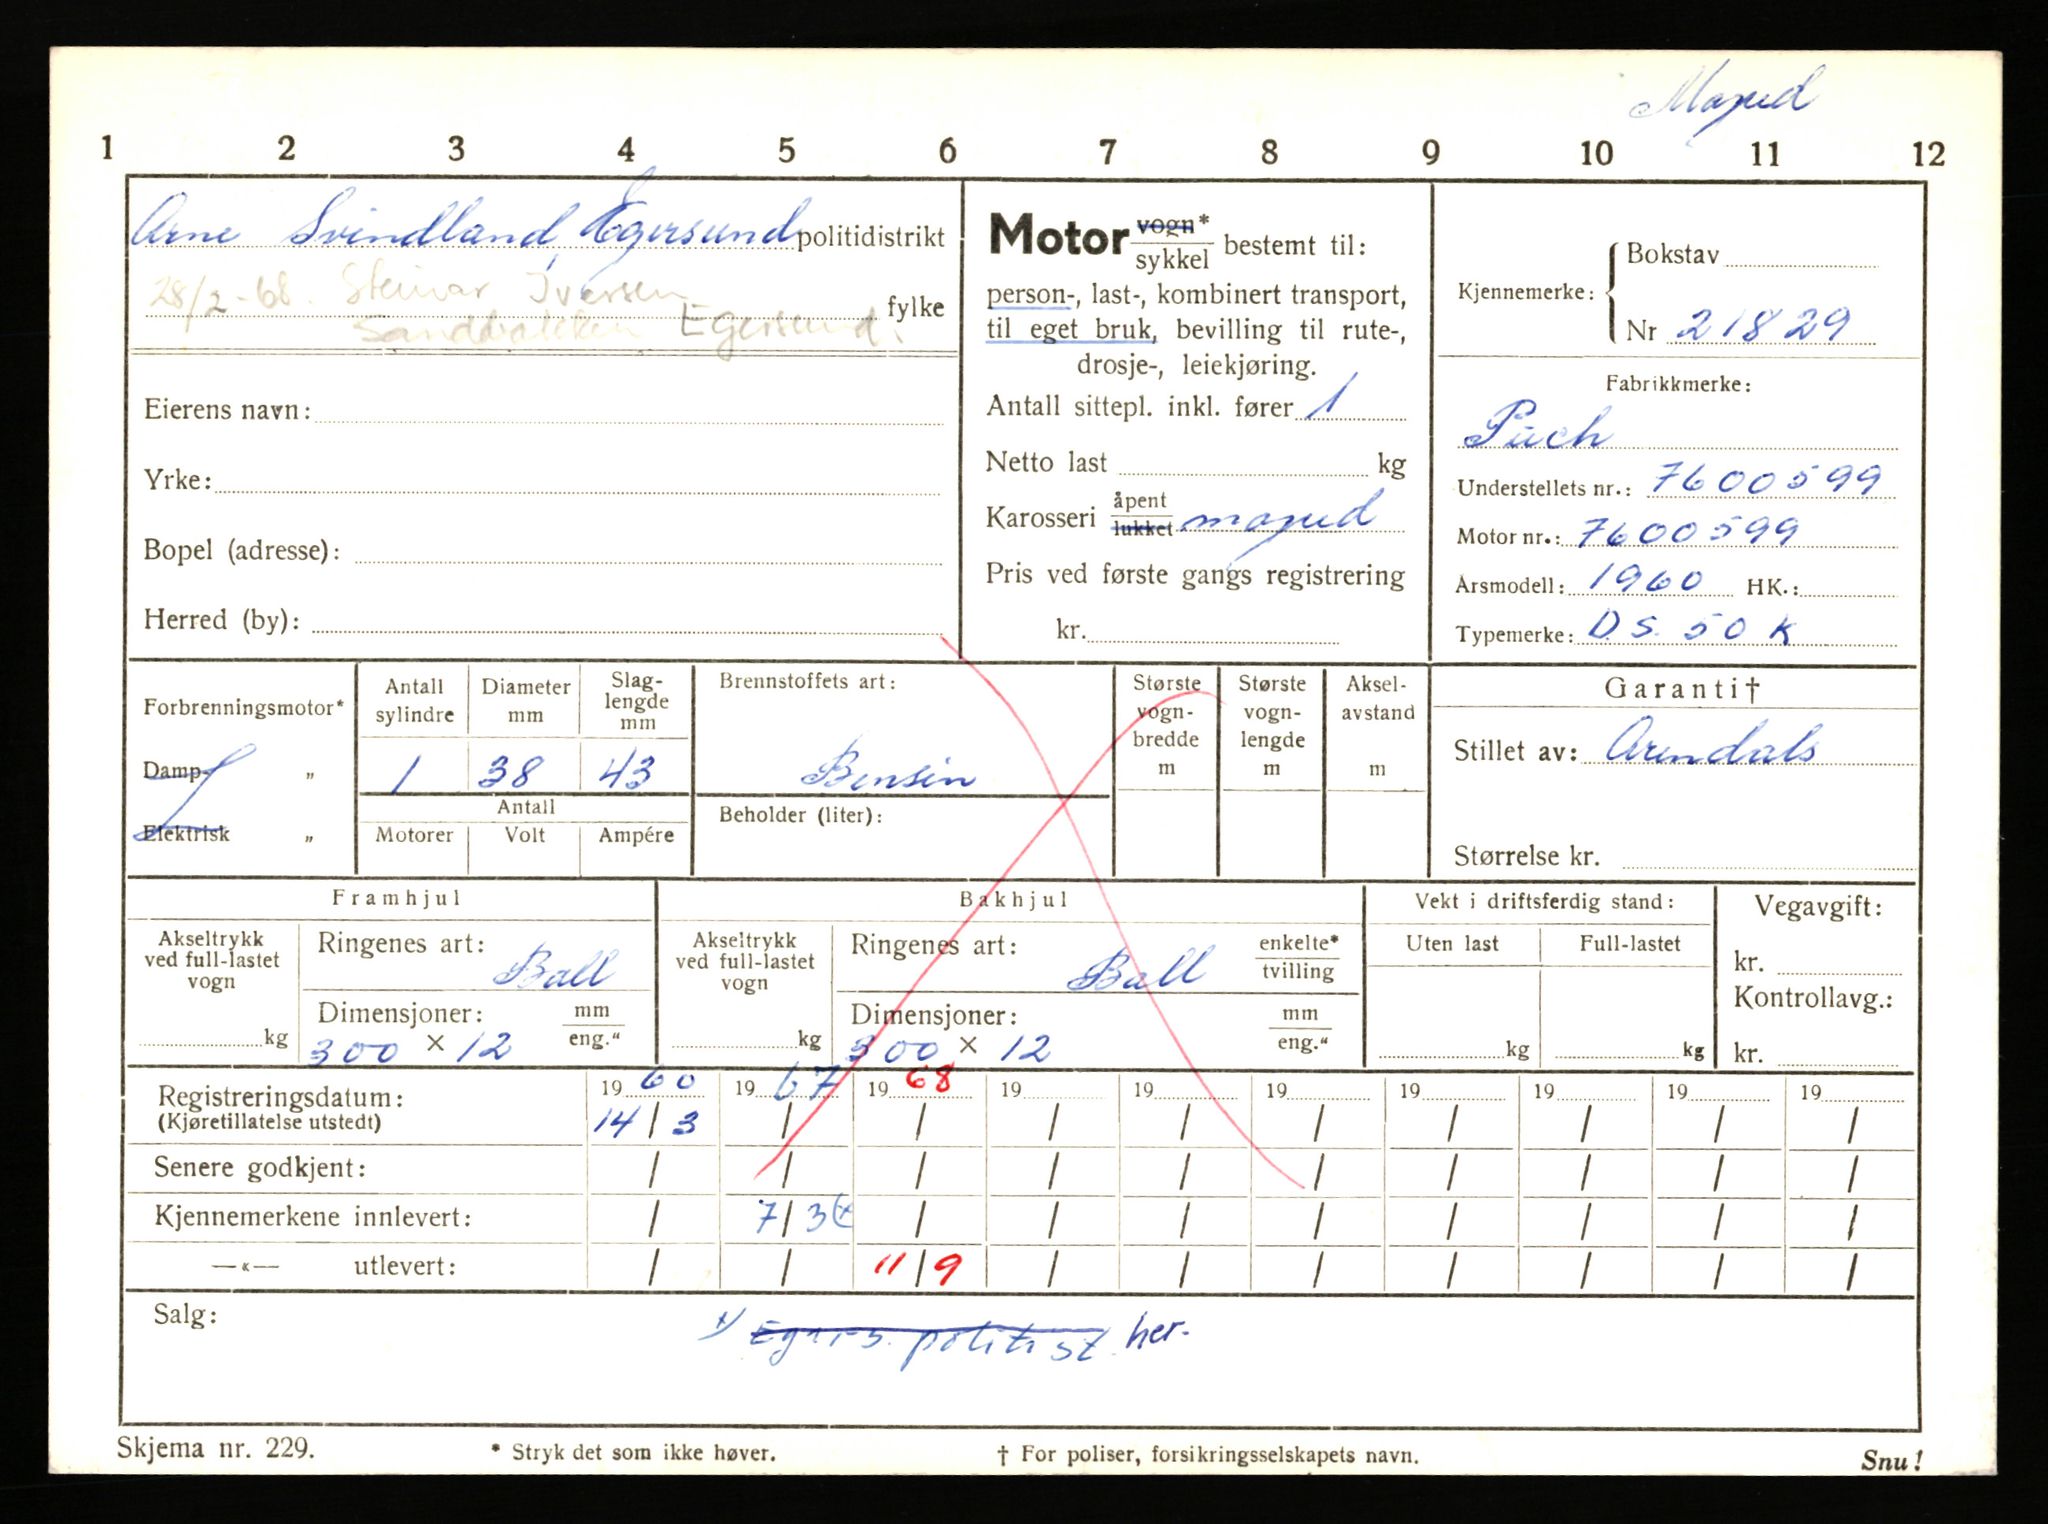 Moped
1 2 3 4 5 6 7 8 9 10 11 12
Arne Svindland Egersund politidistrikt
28/2-68. Steinar Iversen
fylke
Sandbakken Egersund.
Eierens navn:
Yrke:
Bopel (adresse):
Herred (by):
Motor vogn* sykkel bestemt til:
person-, last-, kombinert transport,
til eget bruk, bevilling til rute-,
drosje-, leiekjøring.
Antall sittepl. inkl. fører 1
Netto last kg
Karosseri åpent lukket moped
Pris ved første gangs registrering
kr.
Kjennemerke:
Bokstav
Nr 21829
Fabrikkmerke:
Puch
Understellets nr.: 7600599
Motor nr.: 7600599
Årsmodell: 1960 HK.:
Typemerke: D.S. 50 K
Forbrenningsmotor*
Damp- „
Elektrisk „
Antall sylindre
1
Diameter mm
38
Slag-
lengde
mm
43
Antall
Motorer Volt Ampére
Brennstoffets art:
Bensin
Beholder (liter):
Største
vogn-
bredde
m
Største
vogn-
lengde
m
Aksel-
avstand
m
Garanti†
Stillet av: Arendals
Størrelse kr.
Framhjul
Akseltrykk
ved full-lastet
vogn
kg
Ringenes art:
Ball
Dimensjoner: mm eng."
300 × 12
Bakhjul
Akseltrykk
ved full-lastet
vogn
kg
Ringenes art: enkelte* tvilling
Ball
Dimensjoner: mm eng."
300 × 12
Vekt i driftsferdig stand:
Uten last Full-lastet
kg kg
Vegavgift:
kr.
Kontrollavg.:
kr.
Registreringsdatum: 19 60 19 67 19 68 19 19 19 19 19 19 19
(Kjøretillatelse utstedt) 14/3 / / / / / / / / /
Senere godkjent: / / / / / / / / / /
Kjennemerkene innlevert: / 7/3 x / / / / / / / /
—«— utlevert: / / 11/9 / / / / / / /
Salg:
x) Egers. politist. her-
Skjema nr. 229.
* Stryk det som ikke høver.
† For poliser, forsikringsselskapets navn.
Snu!